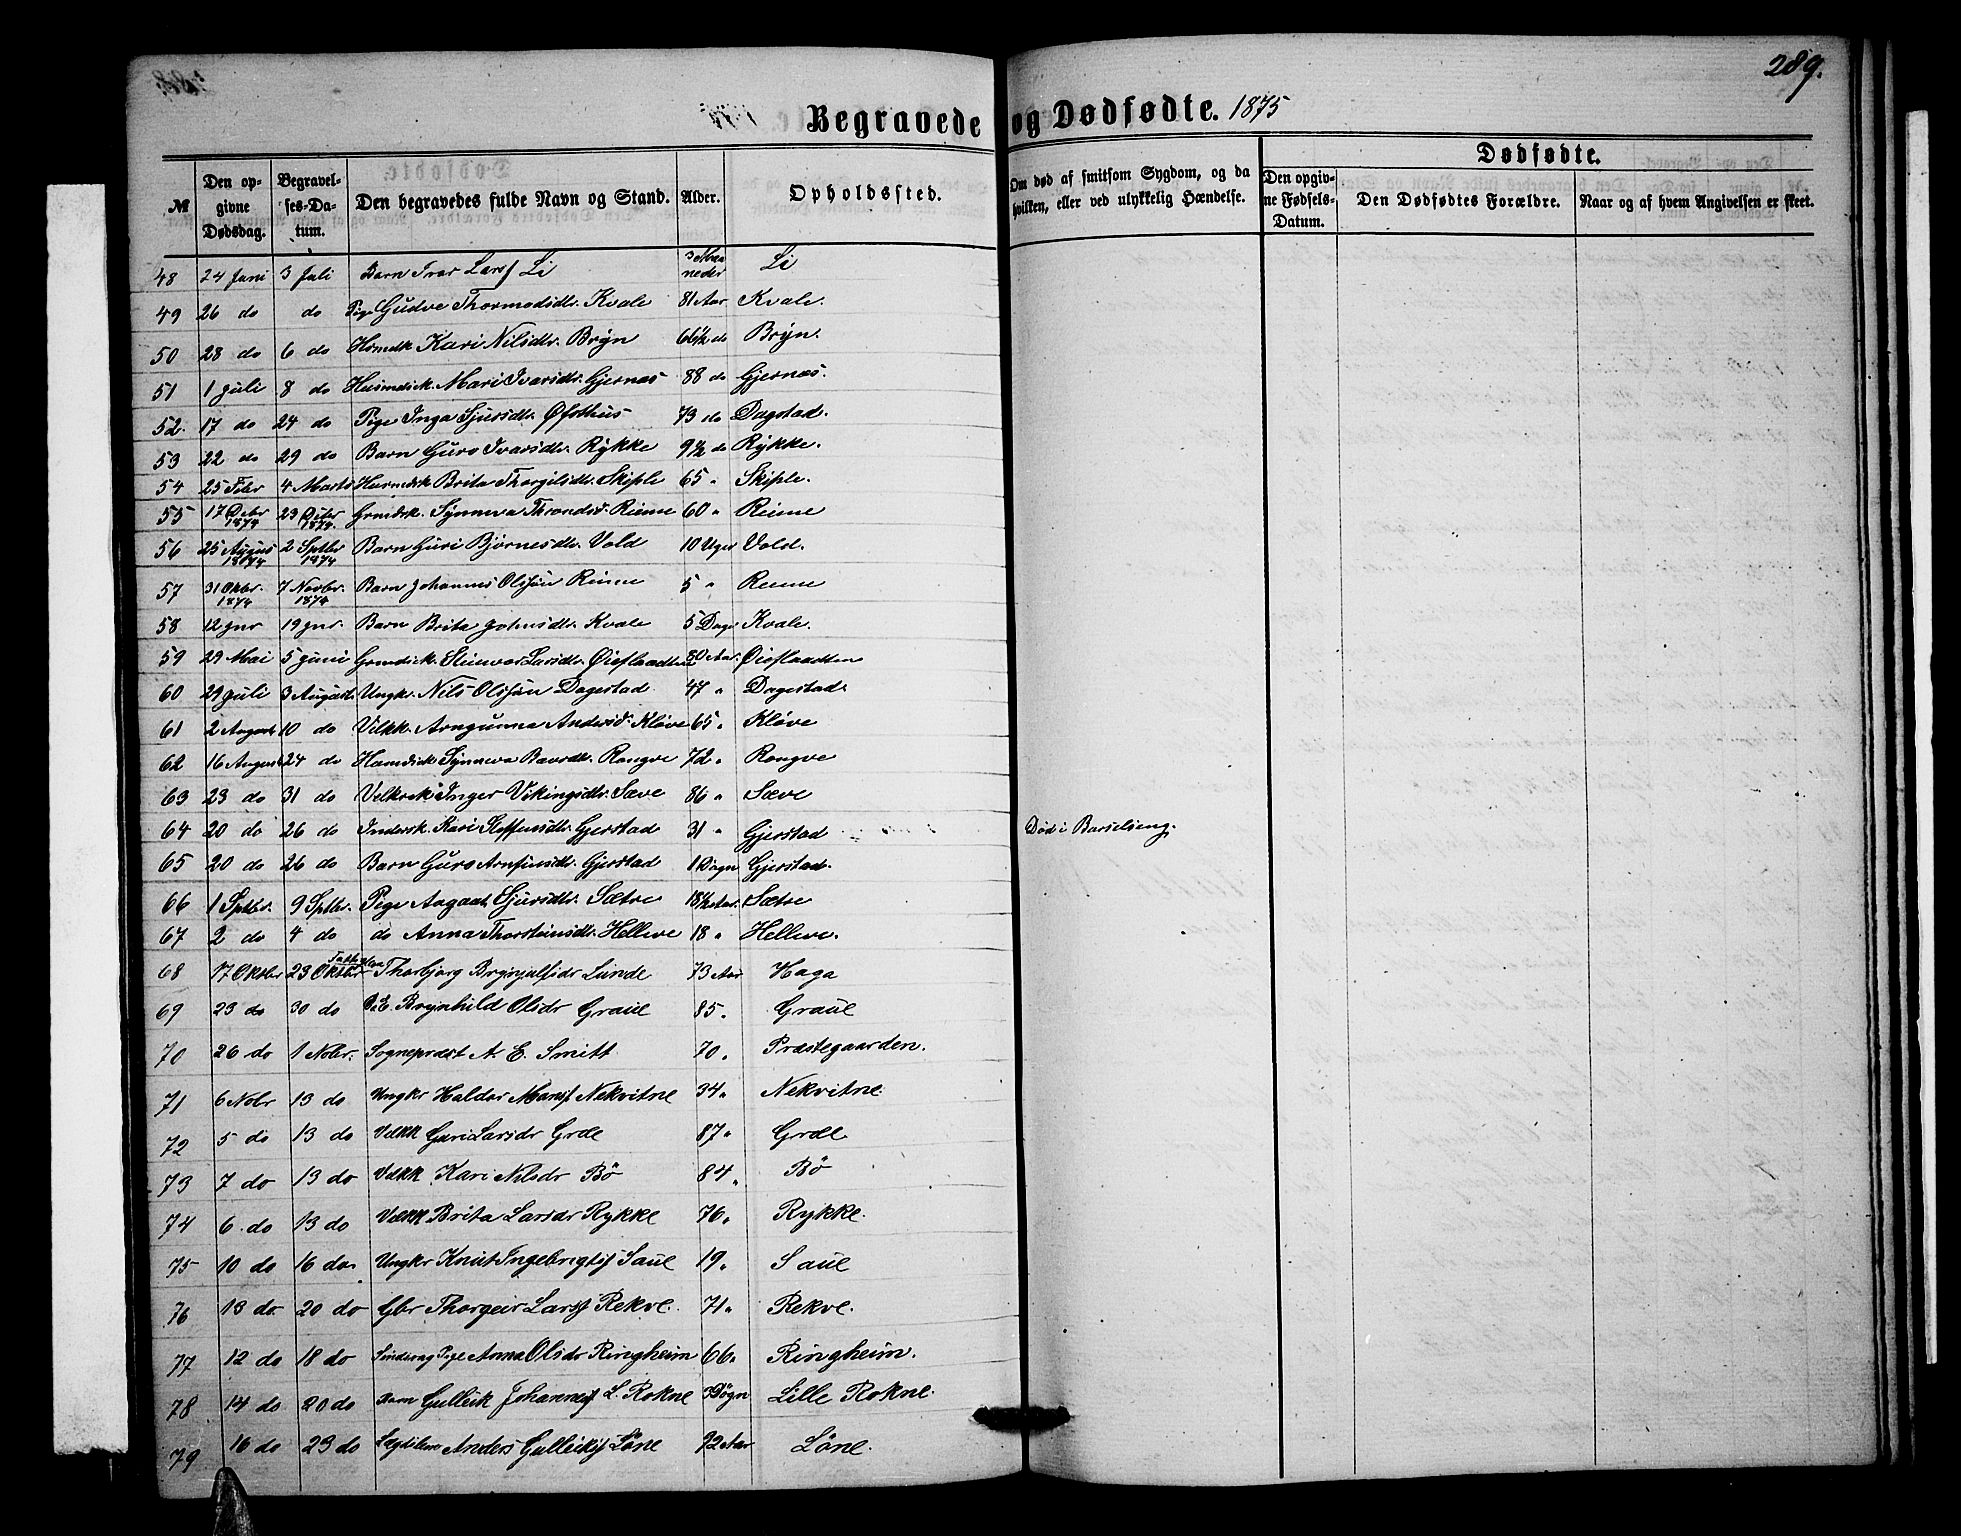 289.
Begravede og Dødfødte. 1875
Dødfødte.
№ Den opgivne Dødsdag. Begravelses-Datum. Den begravedes fulde Navn og Stand. Alder. Opholdssted. Om død af smitsom Sygdom, og da hvilken, eller ved ulykkelig Hændelse. Den opgivne Fødsels-Datum. Den Dødfødtes Forældre. Naar og af hvem Angivelsen er skeet.
48 24 Juni 3 Juli Barn Ivar Larss Li 3 Maaneder Li
49 26 do do Pige Gudve Thormodsdtr. Kvale 81 Aar Kvale.
50 28 do 6 do Hsmdk Kari Nilsdtr. Bryn 66½ do Bryn.
51 1 Juli 8 do Husmdsk. Mari Ivarsdtr. Gjernæs 88 do Gjernæs.
52. 17 do 24 do Pige Inga Sjursdtr. Øfsthus 73 do Dagstad.
53 22 do 29 do Barn Guro Ivarsdtr. Rykke 9½ do Rykke.
54 25 Febr 4 Marts Husmdsk Brita Thorgilsdtr. Skiple 65 " Skiple.
55 17 Debr 1874 23 Debr 1874. Grmdsk. Synneva Throndsd. Rinne 60 " Rinne
56 25 Augus 1874 2 Sptbr 1874 Barn Guri Bjørnesdtr. Vold 10 Uger Vold.
57 31 Oktbr. 1874 7 Novbr. 1874 Barn Johannes Olssøn Rinne 5 " Rinne
58 12 Jnr 19 Jnr. Barn Brita Johnsdtr. Kvale 5 Dage Kvale.
59 29 Mai 5 Juni Grmdsk. Steinvor Larsdtr. Øieflaadten 80 Aar. Øieflaadten
60 29 Juli 3 August Ungkr. Nils Olssøn Dagestad 47 " Dagestad.
61 2 August 10 do Vilkk. Arngunna Andersd. Kløve 65 " Kløve
62 16 August 24 do Husmdsk Synneva Baarsdtr. Rongve 72 " Rongve
63 23 do 31 do Velkvk Inger Vikingsdtr. Sæve 86 " Sæve
64 20 do 26 do Indersk. Kari Steffensdtr. Gjerstad 31 " Gjerstad Død i Barselseng.
65 20 do 26 do Barn Guro Arnfinsdtr. Gjerstad 1 Døgn Gjerstad.
66 1 Sptbr. 9 Sptbr. Pige Aagaat Sjursdtr. Sætre 18½ Aar. Sætre
67 2 do 4 do do Anna Thorsteinsdtr. Helleve 18 " Helleve.
68 17 Oktbr 23 Oktbr Thorbjørg Brynjulfsdr Lunde 73 Aar Haga
69 23 do 30 do Brynhild Olsdr Graue 85 " Graue
70 26 do 1 Nobr. Sognepræst A. E. Smitt 70 " Præstegaarden.
71 6 Nobr 13 do Ungkr Haldor Monss Nekvitne 34 " Nekvitne
72 5 do 13 do Vdkk Guri Larsdr Grøe 87 " Grøe
73 7 do 13 do Vdkk Kari Nilsdr Bø 84 " Bø
74 6. do 13 do Vdkk Brita Larsdr Rykke 76 " Rykke.
75 10 do 16 do Ungkr Knut Ingebrigts Saue 19 " Saue
76 13 do 20 do Gbr Thorgeir Larss Rekve. 71 " Rekve.
77 12 do 18 do Sindsvag Pige Anna Olsdr Ringheim 66 " Ringheim.
78 14 do 20 do Barn Gulleik Johanness L. Rokne 3 Døgn Lille Rokne.
79 16 do 23 do Lægdslem Anders Gulleiks Løne 72 Aar Løne.